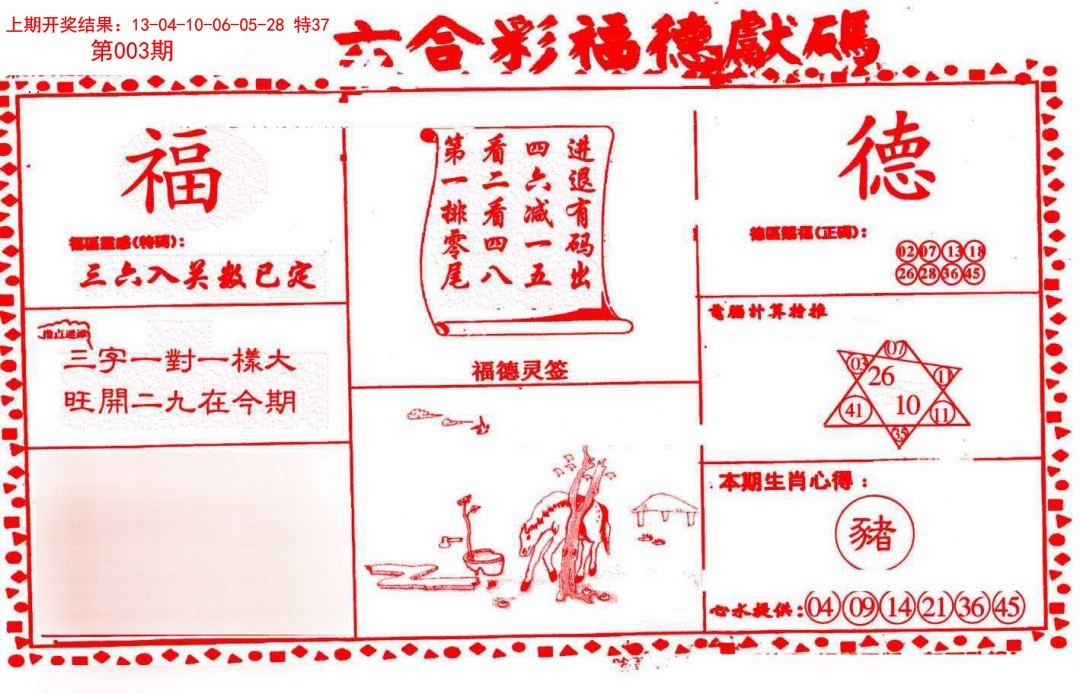 上期开奖结果：13-04-10-06-05-28 特37
第003期
六合彩福德獻碼
福
福區靈感(特碼)：
三六入英数已定
三字一對一樣大
旺開二九在今期
进退有码出
四六减一五
看二看四八
第一排零尾
福德灵签
德
德區賜福(正碼)：
02 07 13 18
26 28 36 45
電腦計算撿推
07
03 26
41 10 11
35
本期生肖心得：
豬
心水提供：04 09 14 21 36 45